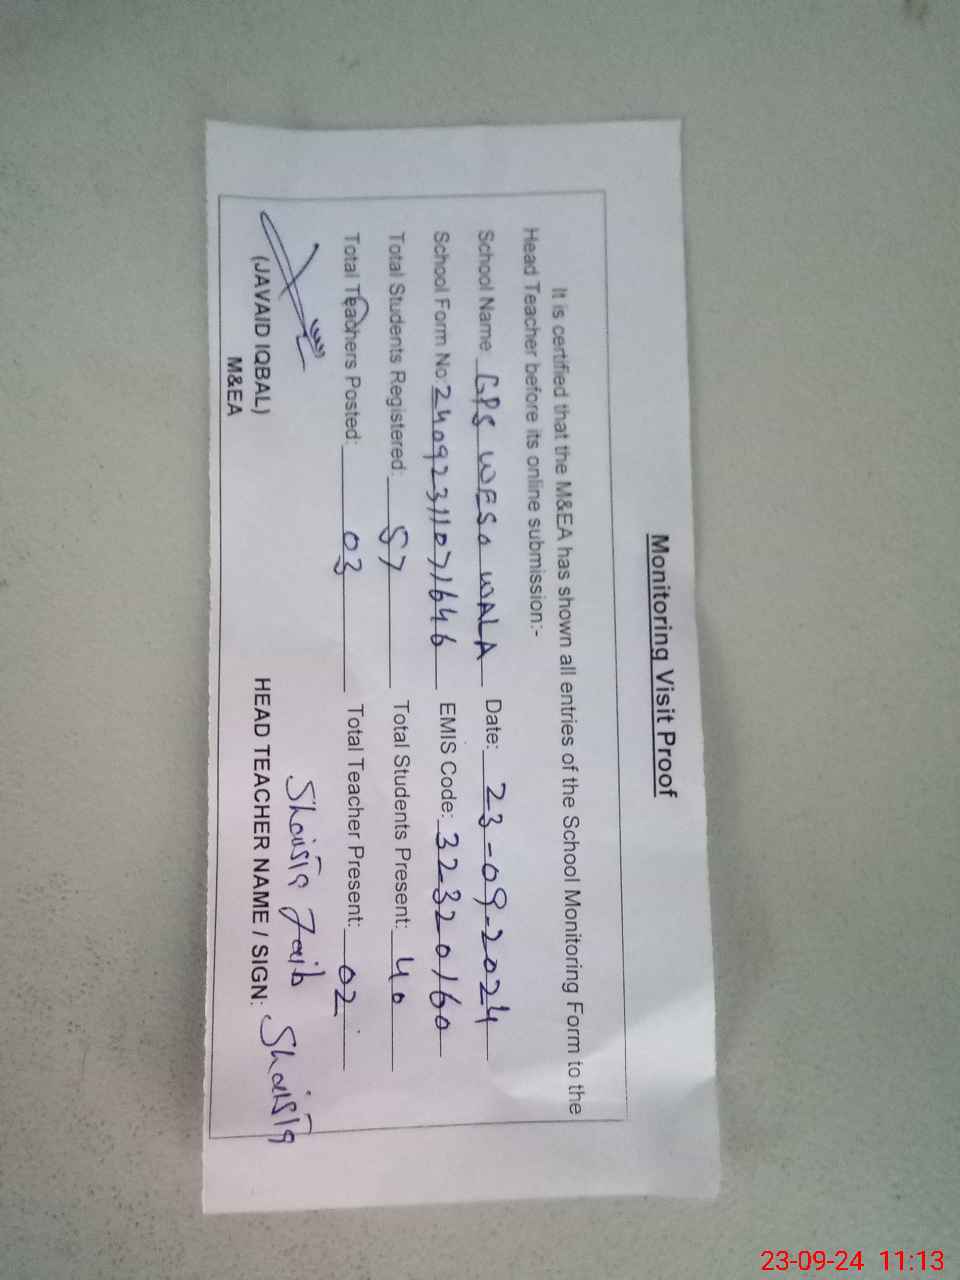 Monitoring Visit Proof
It is certified that the M&EA has shown all entries of the School Monitoring Form to the
Head Teacher before its online submission:-
School Name GPS WESA WALA Date: 23-09-2024
School Form No: 24092311071646 EMIS Code: 32320160
Total Students Registered: 57 Total Students Present: 40
Total Teachers Posted: 03 Total Teacher Present: 02
Shaista Zaib
(JAVAID IQBAL) HEAD TEACHER NAME / SIGN: Shaista
M&EA
23-09-24 11:13